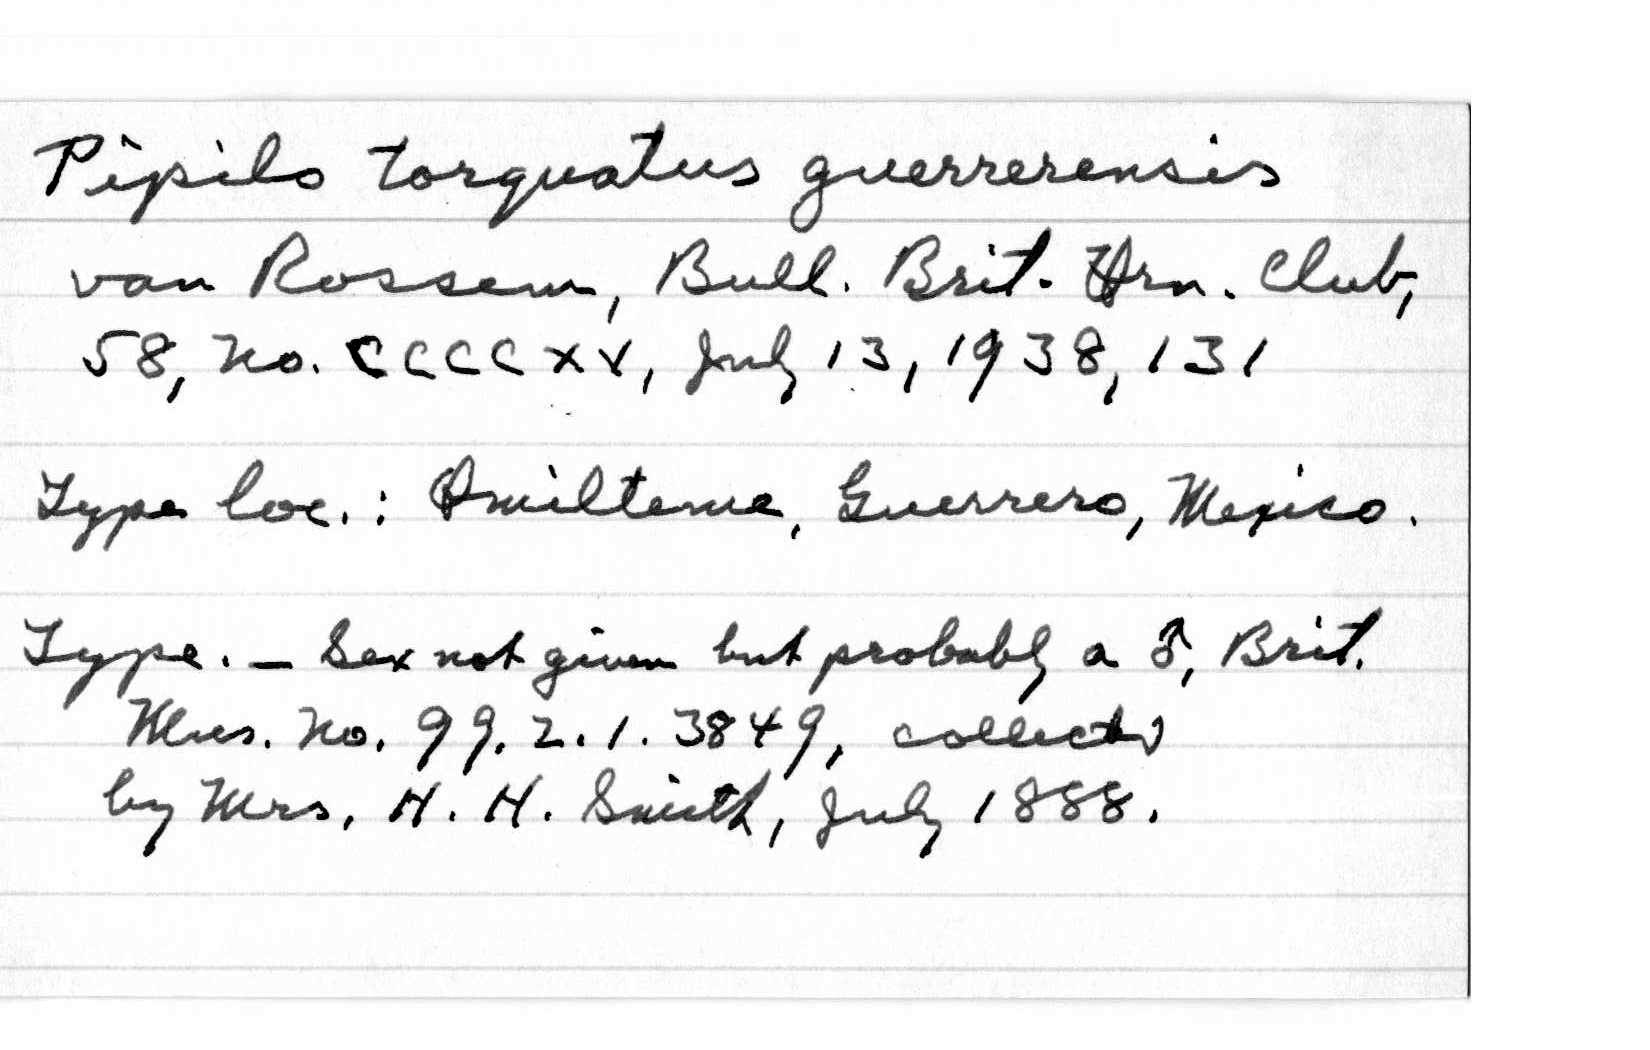 Pipilo torquatus guerrerensis
van Rossem, Bull. Brit. Orn. Club,
58, No. CCCCXV, July 13, 1938, 131
Type loc.: Omilteme, Guerrero, Mexico.
Type. — Sex not given but probably a ♂, Brit.
Mus. No. 99.2.1.3849, collected
by Mrs. H. H. Smith, July 1888.